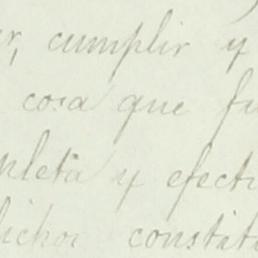 r, cumplir y
cosa que fu
nleta y efecti
lichos constit